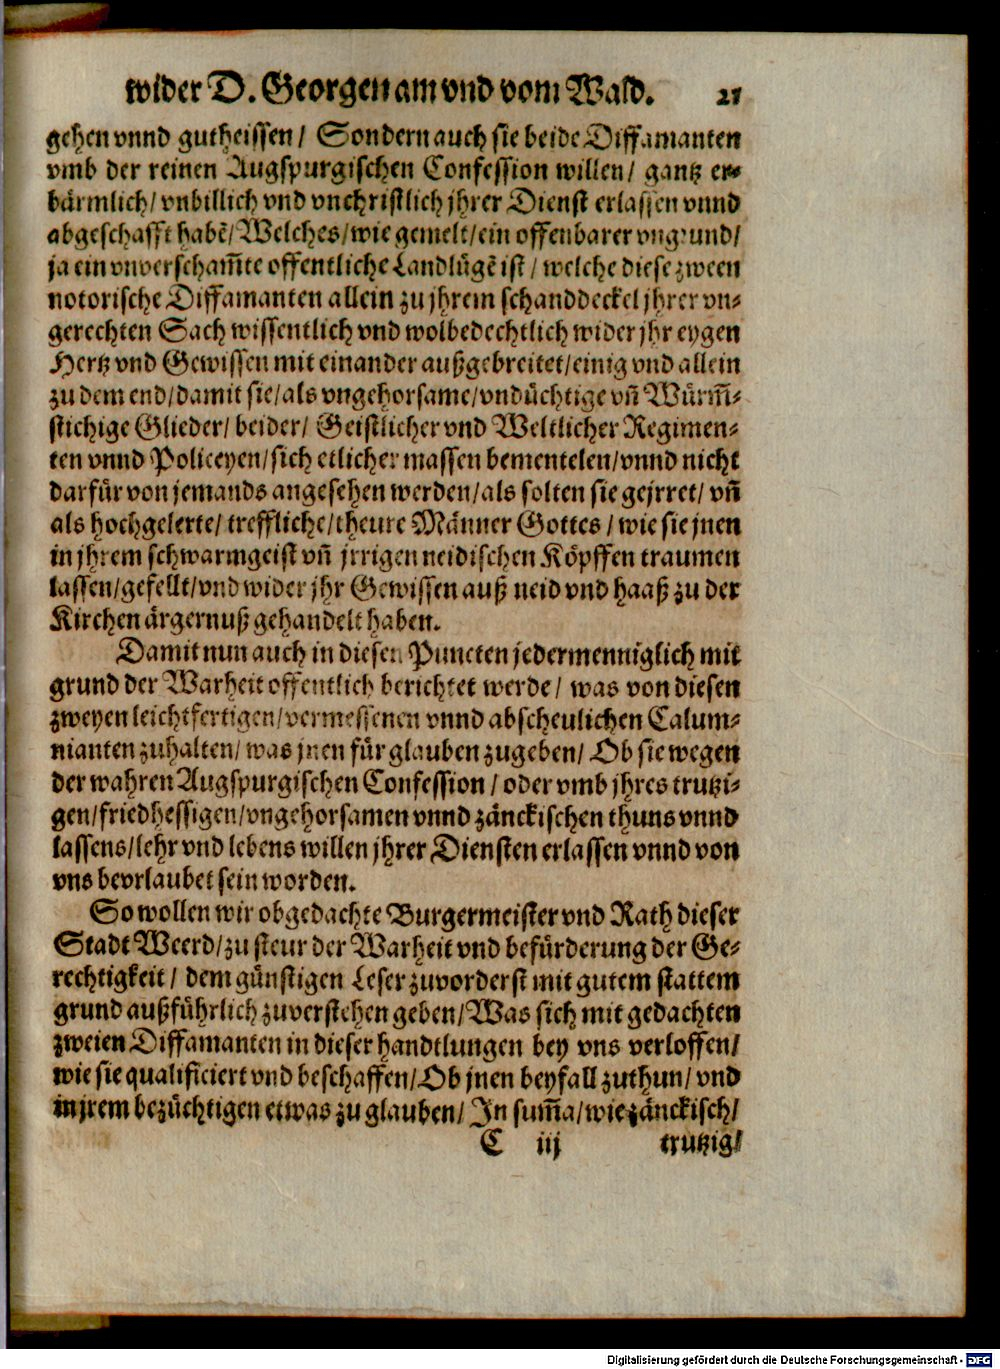 wider D. Georgen am vnd vom Wald. 21
gehen vnnd gutheissen / Sondern auch sie beide Diffamanten
vmb der reinen Augspurgischen Confession willen / gantz er-
bärmlich / vnbillich vnd vnchristlich jhrer Dienst erlassen vnnd
abgeschafft habẽ / Welches / wie gemelt / ein offenbarer vngrund /
ja ein vnverscham̃te offentliche Landlügẽ ist / welche diese zween
notorische Diffamanten allein zu jhrem schanddeckel jhrer vn-
gerechten Sach wissentlich vnd wolbedechtlich wider jhr eygen
Hertz vnd Gewissen mit einander außgebreitet / einig vnd allein
zu dem end / damit sie / als vngehorsame / vndüchtige vñ Würm̃-
stichige Glieder / beider / Geistlicher vnd Weltlicher Regimen-
ten vnnd Policeyen / sich etlicher massen bementelen / vnnd nicht
darfür von jemands angesehen werden / als solten sie gejrret / vñ
als hochgelerte / treffliche / theure Männer Gottes / wie sie jnen
in jhrem schwarmgeist vñ jrrigen neidischen Köpffen traumen
lassen / gefellt / vnd wider jhr Gewissen auß neid vnd haaß zu der
Kirchen ärgernuß gehandelt haben.
Damit nun auch in diesen Puncten jedermenniglich mit
grund der Warheit offentlich berichtet werde / was von diesen
zweyen leichtfertigen / vermessenen vnnd abscheulichen Calum-
nianten zuhalten / was jnen für glauben zugeben / Ob sie wegen
der wahren Augspurgischen Confession / oder vmb jhres trutzi-
gen / friedhessigen / vngehorsamen vnnd zänckischen thuns vnnd
lassens / lehr vnd lebens willen jhrer Diensten erlassen vnnd von
vns bevrlaubet sein worden.
So wollen wir obgedachte Burgermeister vnd Rath dieser
Stadt Weerd / zu steur der Warheit vnd befürderung der Ge-
rechtigkeit / dem günstigen Leser zuvorderst mit gutem stattem
grund außführlich zuverstehen geben / Was sich mit gedachten
zweien Diffamanten in dieser handtlungen bey vns verloffen /
wie sie qualificiert vnd beschaffen / Ob jnen beyfall zuthun / vnd
in jrem bezüchtigen etwas zu glauben / In sum̃a / wie zänckisch /
C iij trutzig /
Digitalisierung gefördert durch die Deutsche Forschungsgemeinschaft - DFG